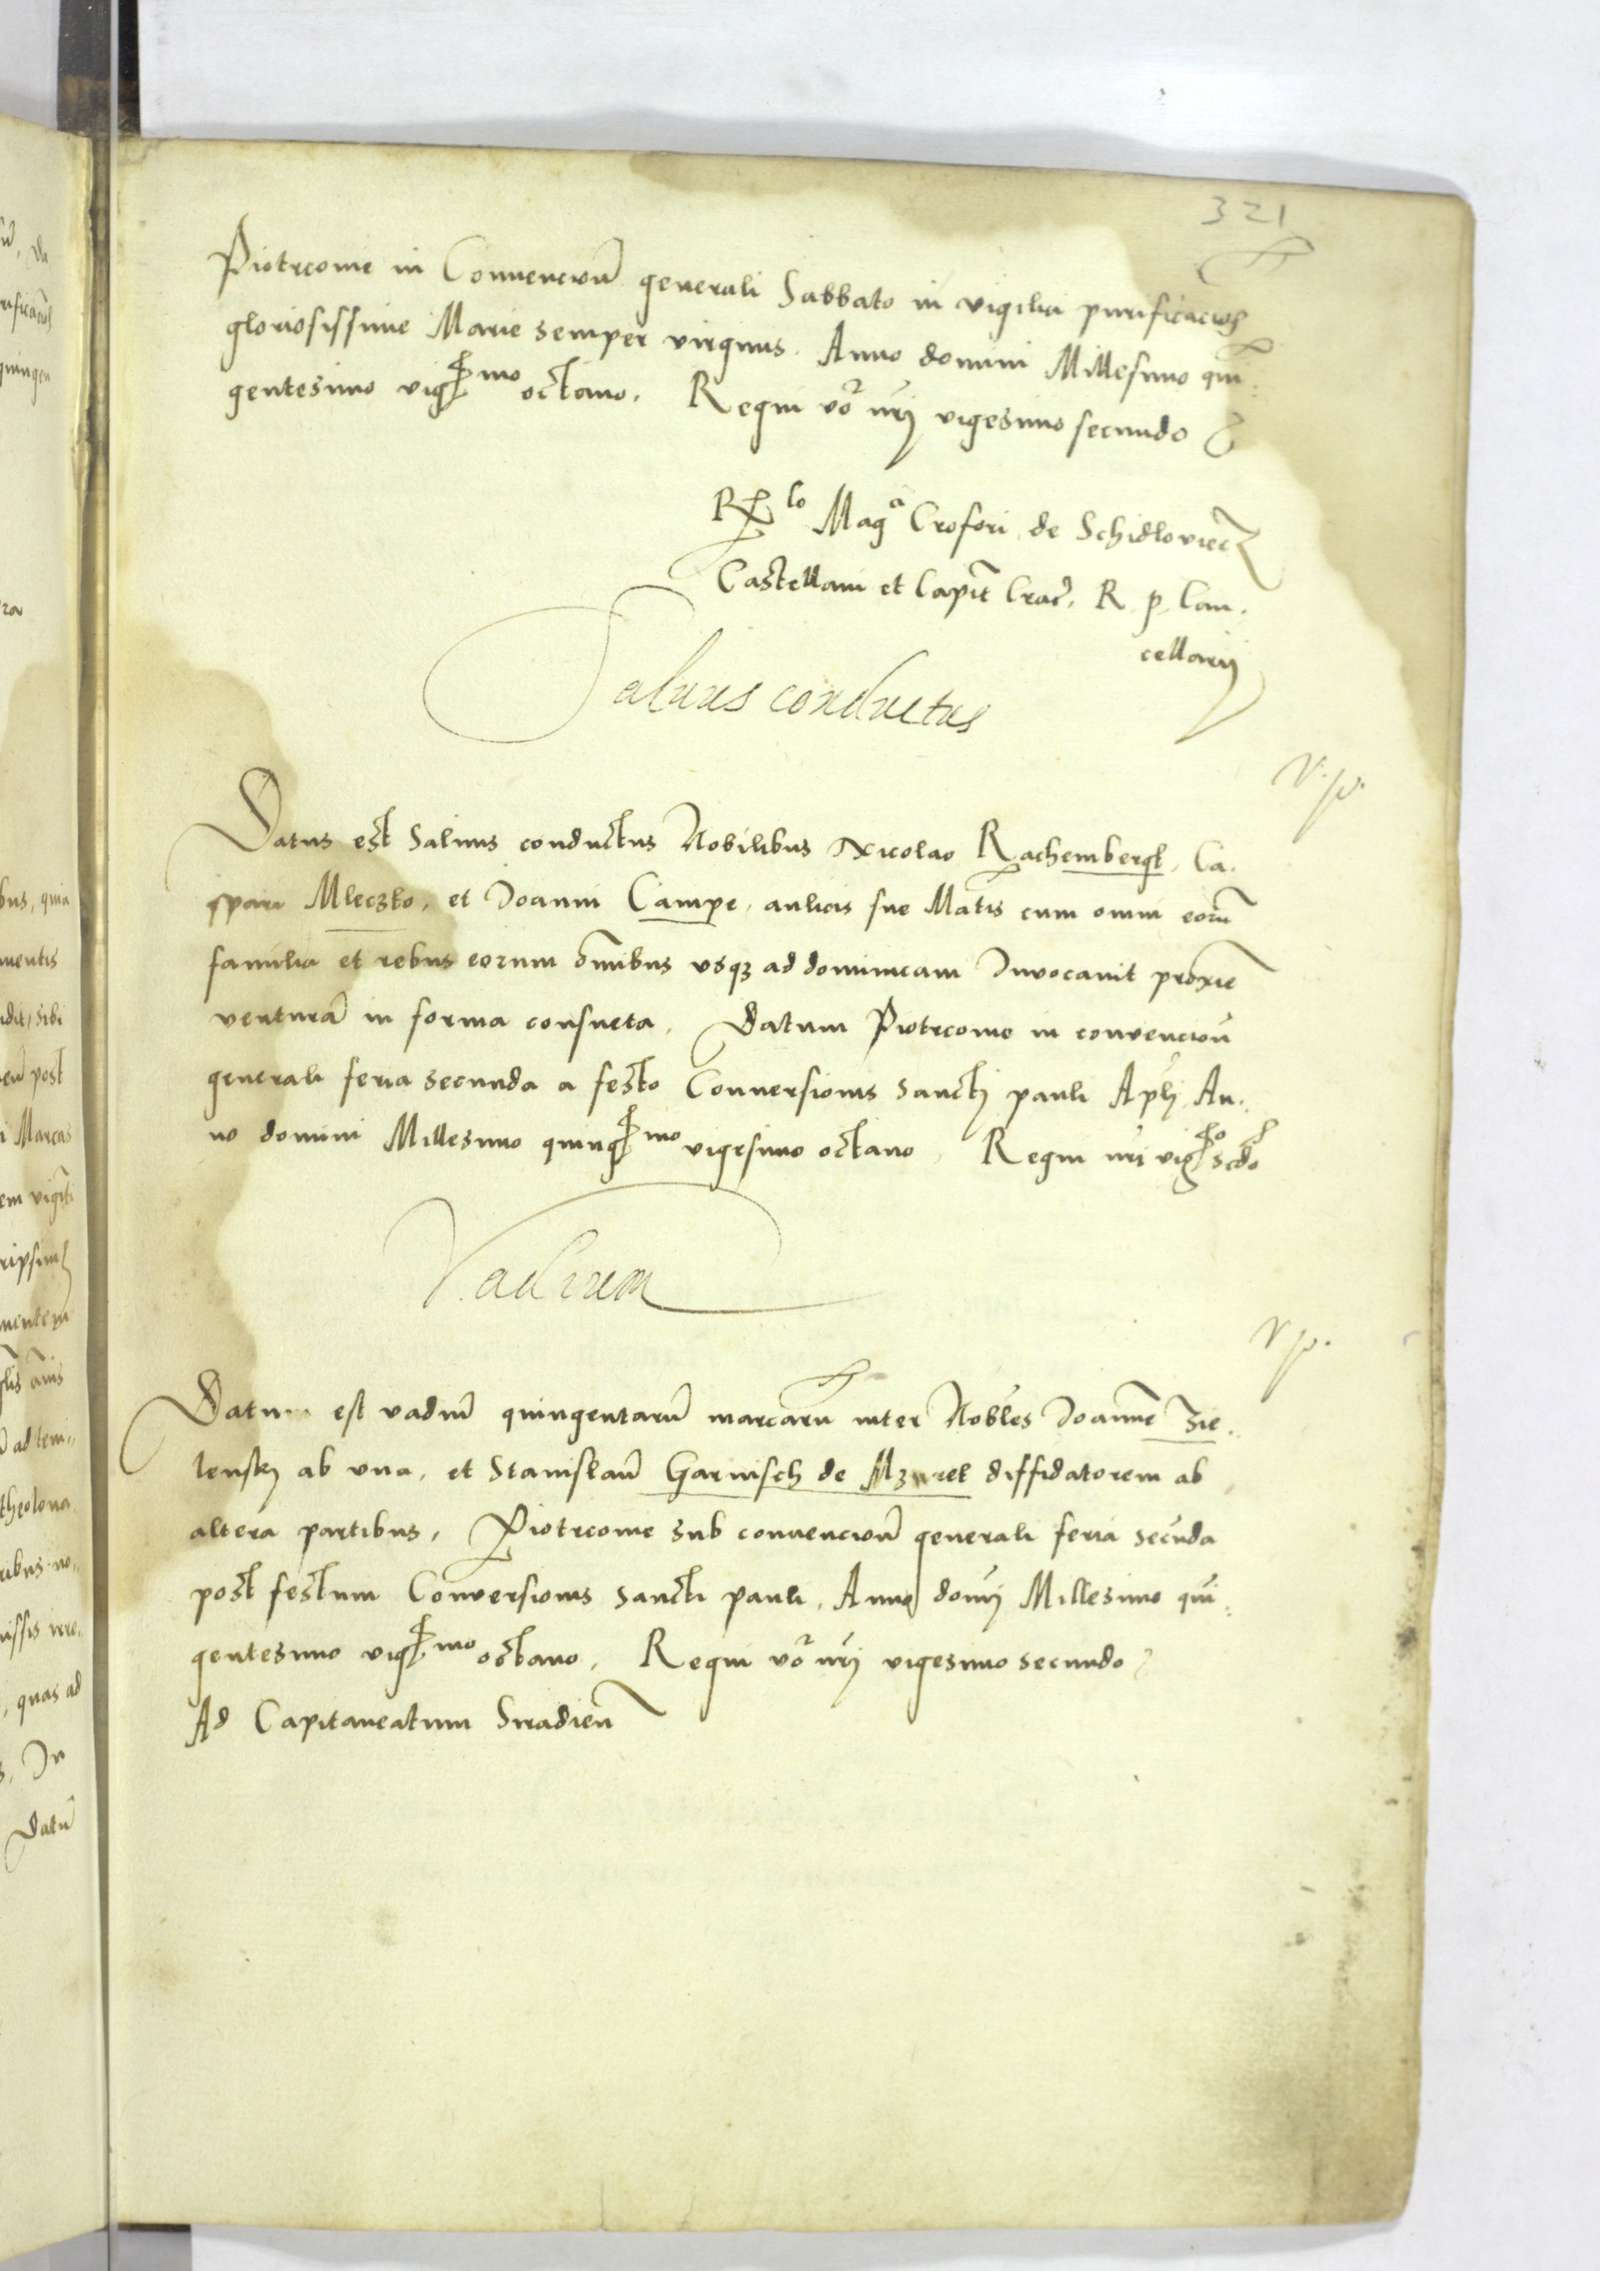 321
Piotrcovie in Convencioñ generali Sabbato in vigilia purificacioñ
gloriosissime Marie semper virginis. Anno domini Millesimo quin
gentesimo vigmo octavo. Regni vo nri vigesimo secundo
Rlo Mag Crofori de Schidloviecz
Castellani et Capit Crac. R. p. Can.
cellarii
Salvus conductus
v. p.
Datus est Salvus conductus Nobilibus Nicolao Rachembergk, Ca.
spari Mleczko, et Joanni Campe, aulicis sue Matis cum omni eorum
familia et rebus eorum omibus usq ad dominicam Invocavit proxie
ventura in forma consueta. Datum Piotrcovie in convencioñ
generali feria secunda a festo Conversionis sancti pauli Apli An.
no domini Millesimo quingmo vigesimo octavo. Regni nri vigo scdo
Vadium
v p.
Datum est vadiu quingentaru marcaru inter Nobles Joanne Zie.
lensky ab una, et Stanislau Garnisch de Mzurek diffidatorem ab
altera partibus. Piotrcovie sub convencioñ generali feria secuda
post festum Conversionis sancti pauli. Anno domi Millesimo qui
gentesimo vigmo octavo. Regni vo nri vigesimo secundo
Ad Capitaneatum Siradień